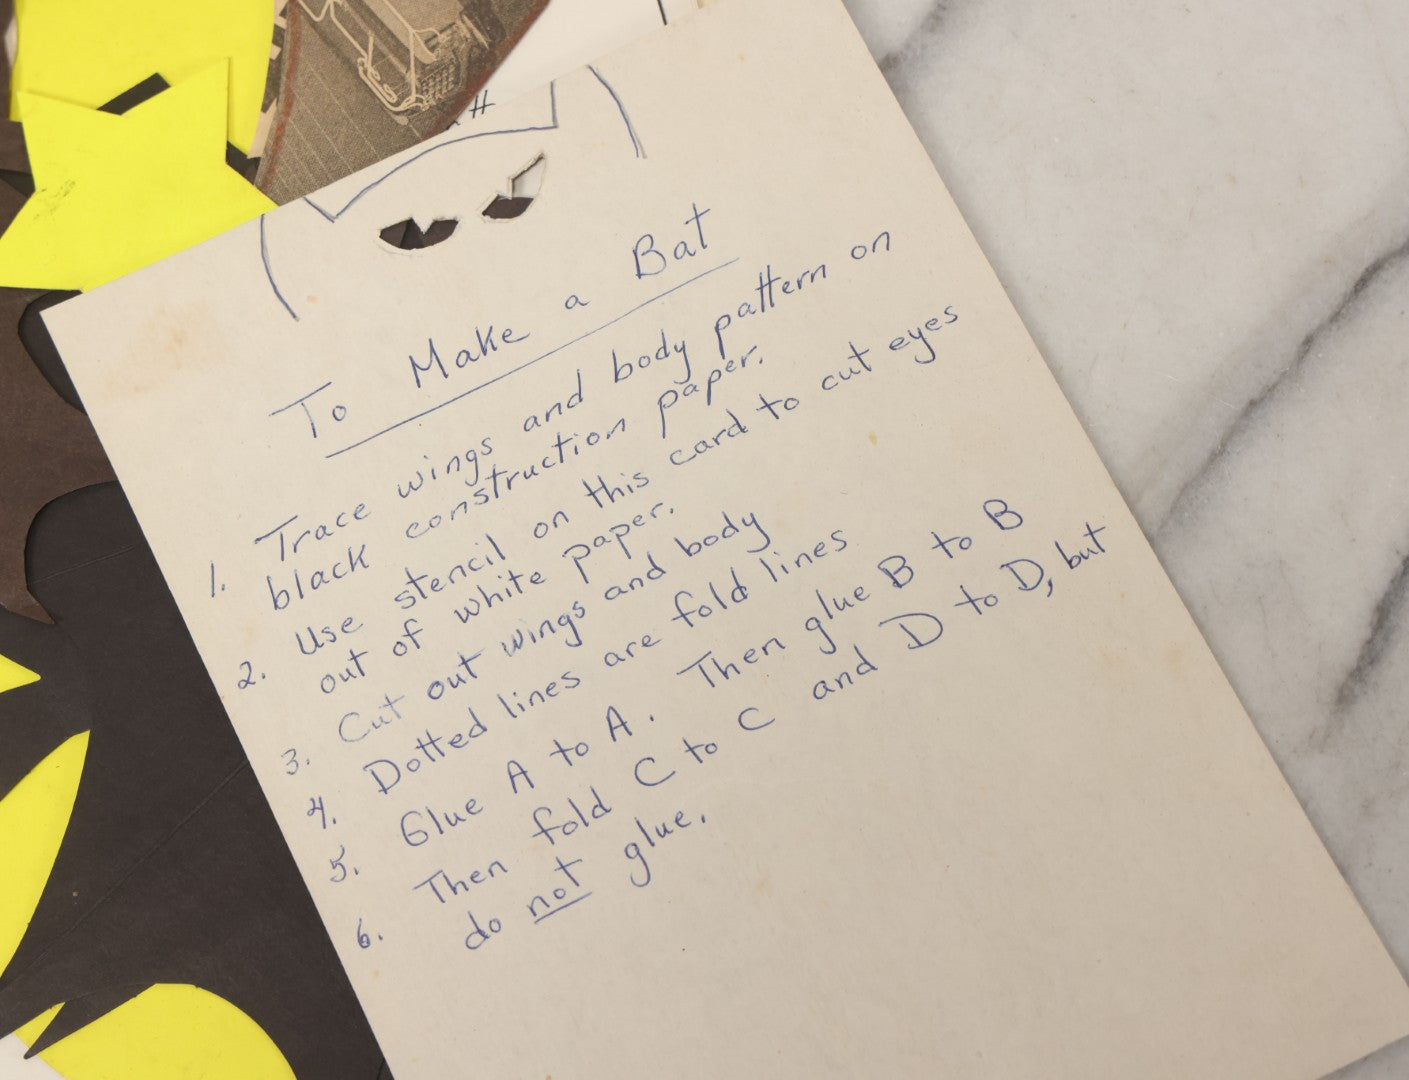 #
To Make a Bat
1. Trace wings and body pattern on
black construction paper.
2. Use stencil on this card to cut eyes
out of white paper.
3. Cut out wings and body
4. Dotted lines are fold lines
5. Glue A to A. Then glue B to B
6. Then fold C to C and D to D, but
do not glue.